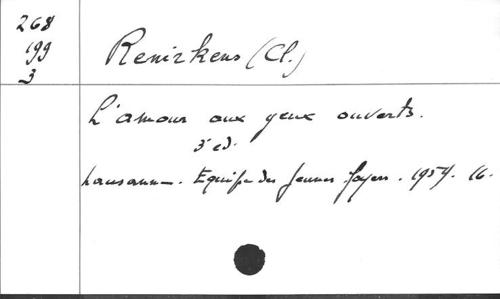 268
199
3
Renirkens (Cl.)
L'amour aux yeux ouverts.
3e ed.
Lausanne. Equipe des Jeunes foyers. 1954. 16.